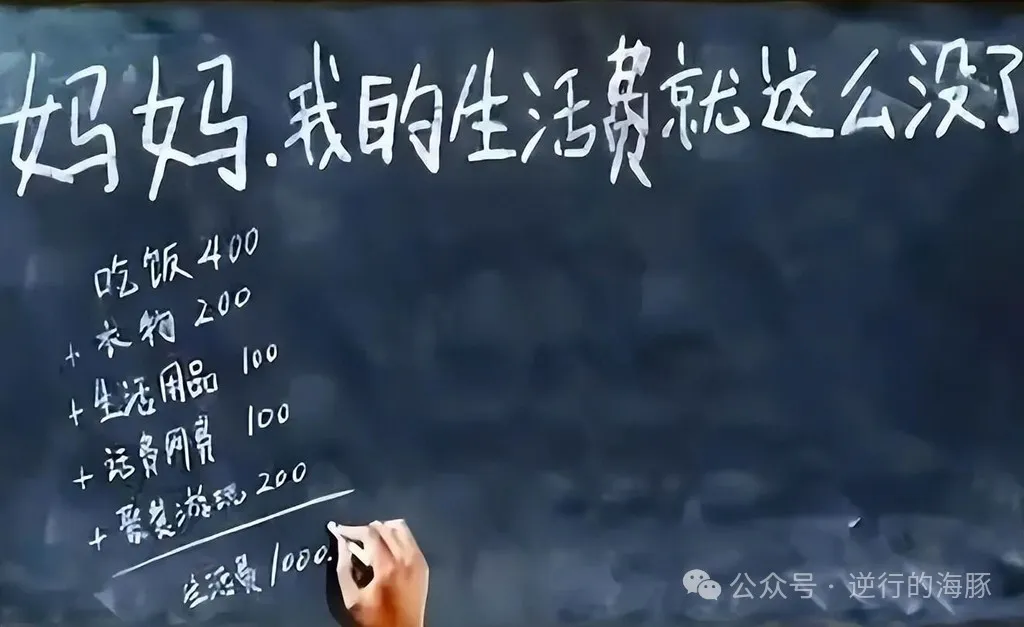 妈妈.我的生活费就这么没了
吃饭 400
+ 衣物 200
+ 生活用品 100
+ 话费网费 100
+ 聚餐游玩 200
生活费 1000.
公众号 · 逆行的海豚